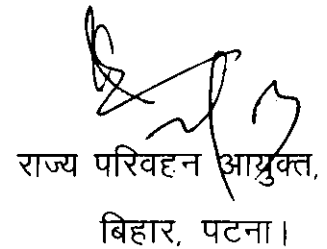 राज्य परिवहन आयुक्त,
बिहार, पटना।